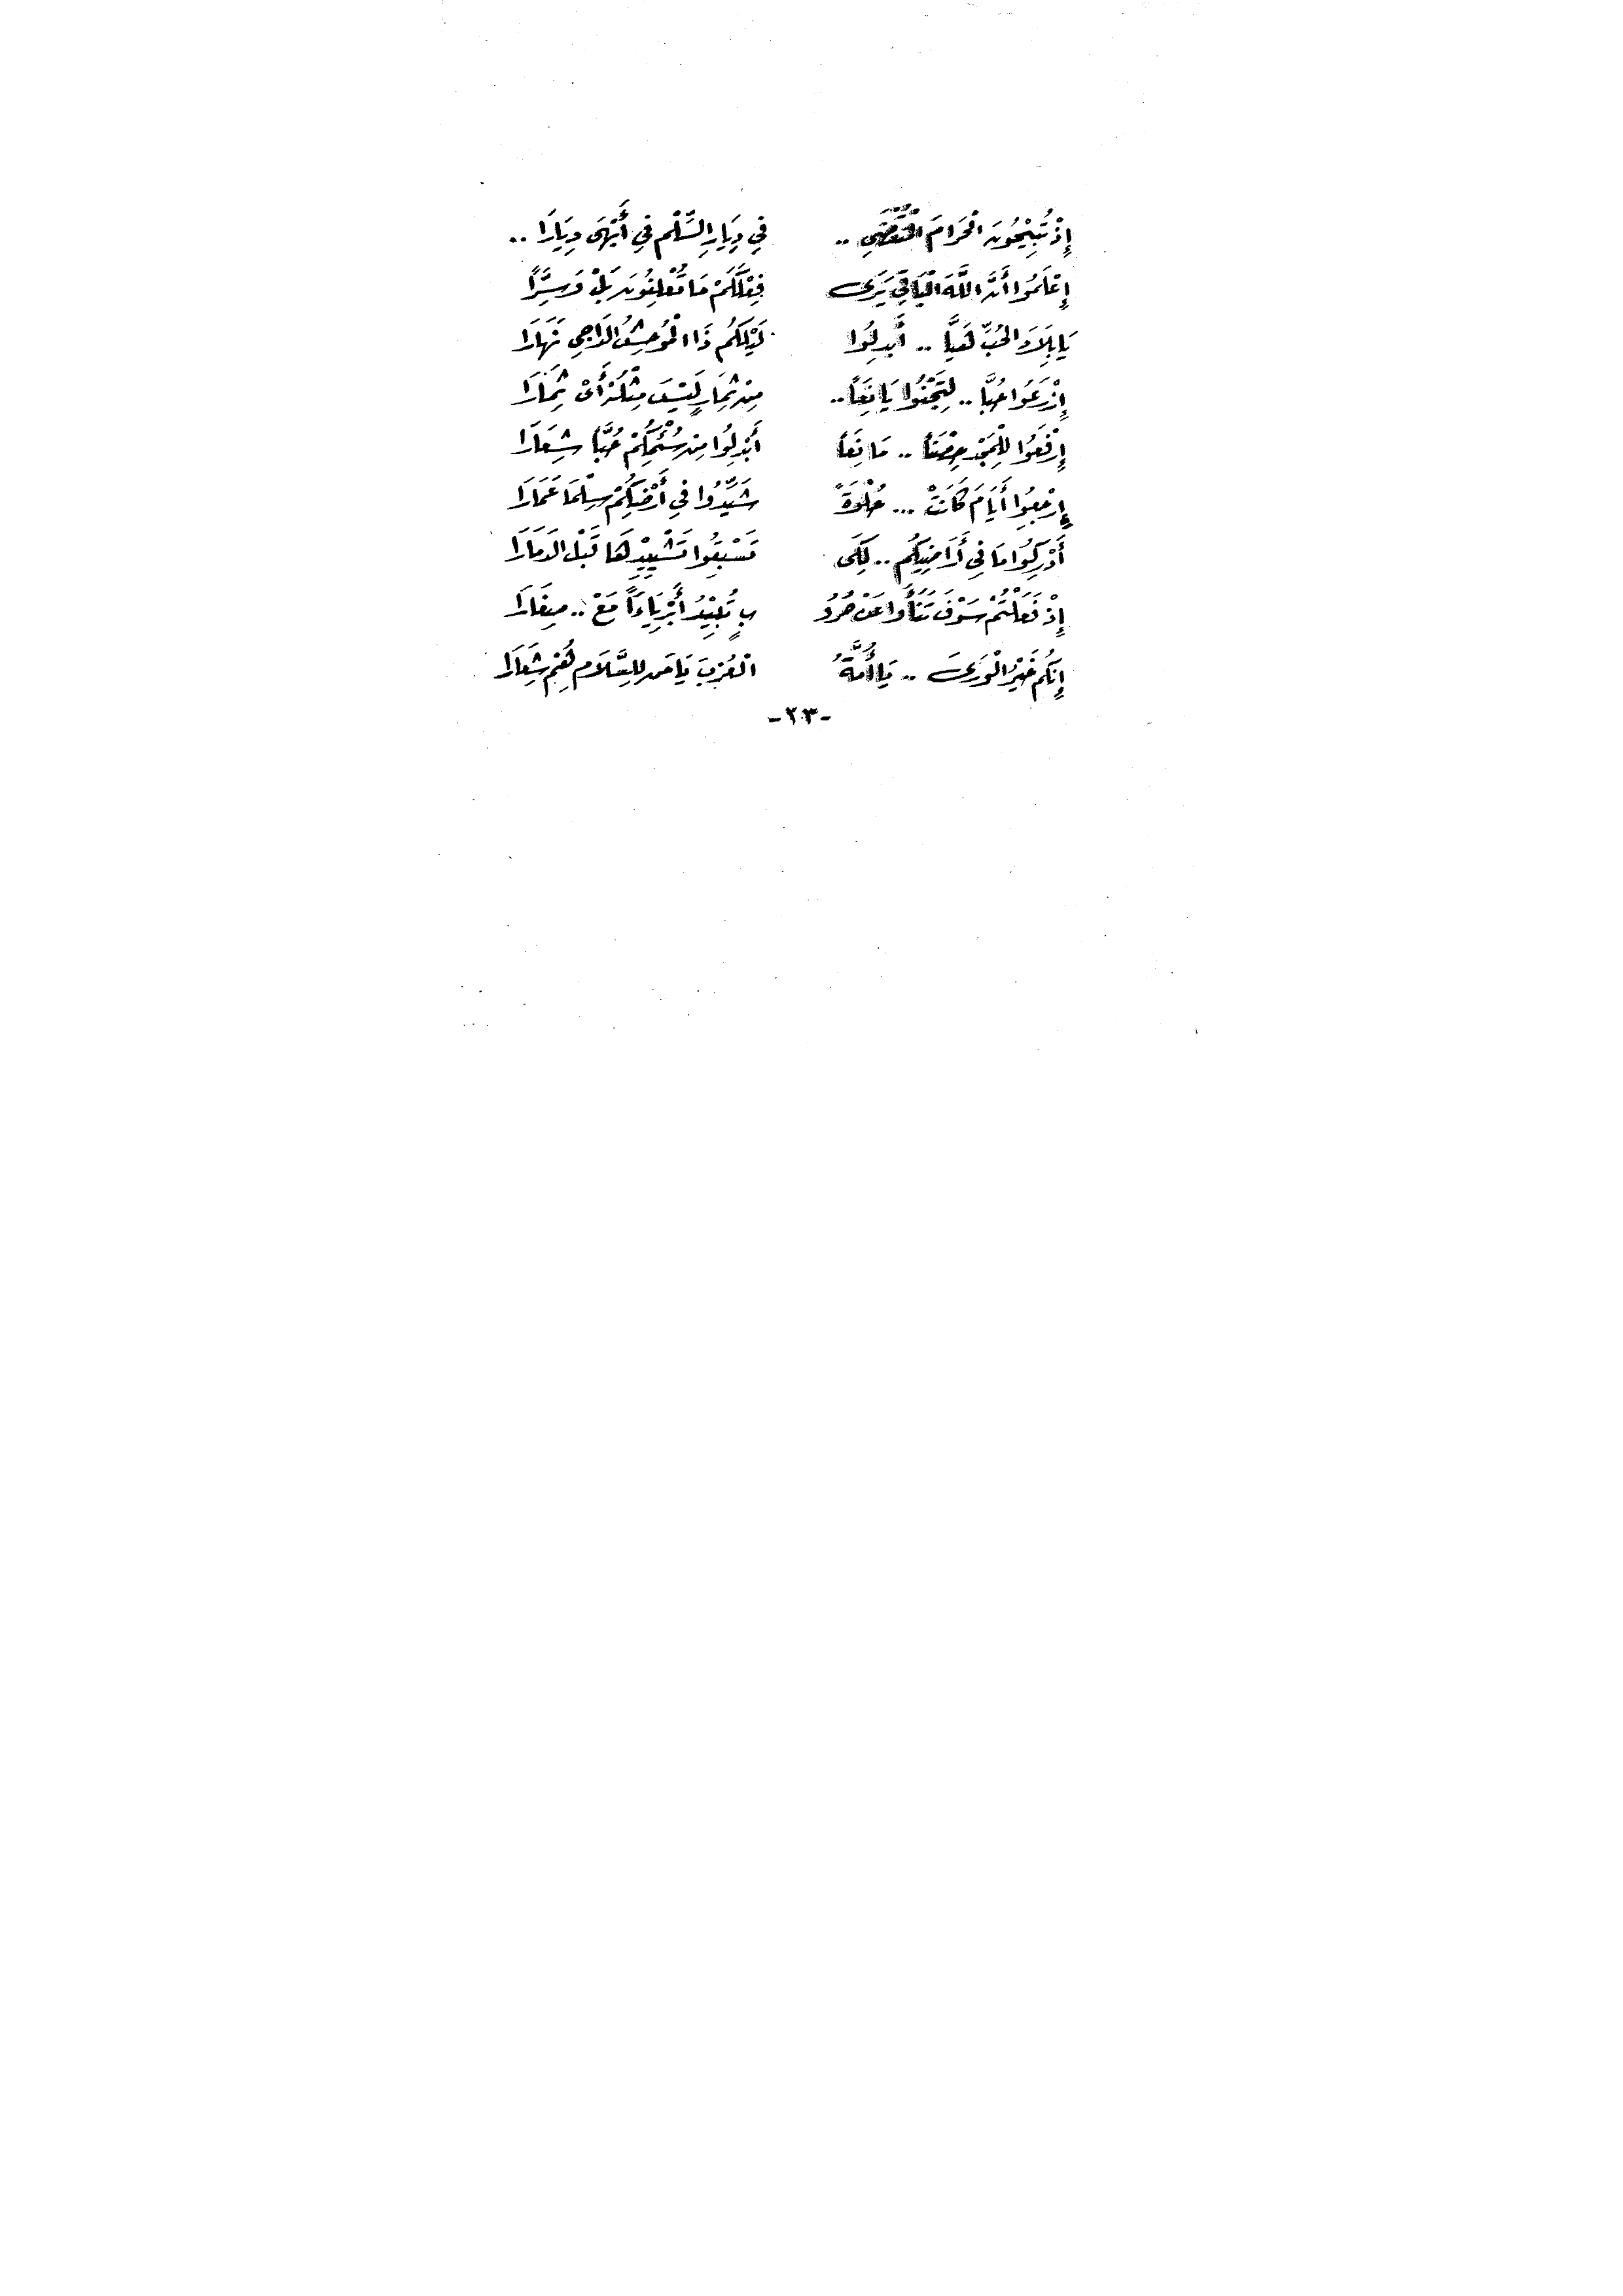 إِذْ تُبِيْحُونَ الْحَرَامَ .. فِي دِيَارِ السِّلْمِ فِي أَبْهَى دِيَارَا ..
إِعْلَمُوا أَنَّ اللَّهَ الْبَاقِي يَرَى فِعْلَكُمْ مَا تُعْلِنُونَ بَلْ وَسِرَّاً
يَا بِلَادَ الْحُبِّ هَيَّا .. أَبْدِلُوا لَيْلَكُم ذَا الْمُوحِشُ الدَاجِي نَهَارَا
إِزْرَعُوا حُبَّاً .. لِتَجْنُوا يَانِعَاً .. مِنْ ثِمَارٍ لَيْسَ مِثْلُهْ أَيْ ثِمَارَا
إِرْفَعُوا لِلْمَجْدِ حِصْنَاً .. مَانِعَاً أَبْدِلُوا مِنْ شُئْمِكُمْ حُبَّاً شِعَارَا
إِرْجِعُوا أَيَامَ كَانَتْ ... حُلْوَةً شَيِّدُوا فِي أَرْضِكُمْ سِلْمَاً عَمَارَا
أَدْرِكُوا مَا فِي أَرَاضِيكُم .. لِكَى تَسْبَقُوا تَشْيِيْدِهَا قَبْل الدَمَارَا
إِذْ فَعَلْتُمْ سَوْفَ تَنْأَوا عَنْ حُرُو بٍ تُبِيْدُ أَبْرِيَاءَاً مَعْ .. صِغَارَا
إِنَكُم خَيْرُ الْوَرَى .. يَا أُمَّةُ الْعُرْبِ يَا مَن لِلسَّلَامِ شِعَارَا
-٢٣-